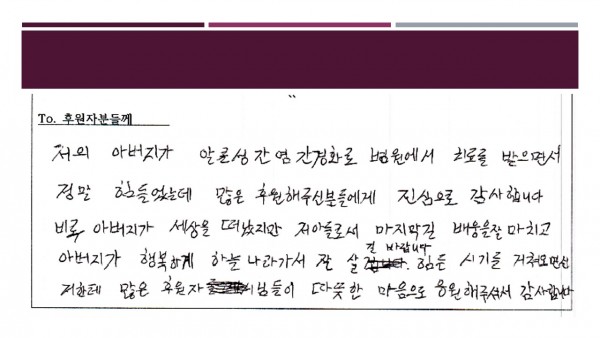 To. 후원자분들께
저의 아버지가 알콜성간염간경화로 병원에서 치료를 받으면서
정말 힘들었는데 많은 후원해주신분들에게 진심으로 감사합니다
비록 아버지가 세상을 떠났지만 저아들로서 마지막길 배웅을잘 마치고
아버지가 행복하게 하늘나라가서 잘 살길 바랍니다. 힘든 시기를 거쳐오면서
저한테 많은 후원자님들이 따뜻한 마음으로 응원해주셔서 감사합니다